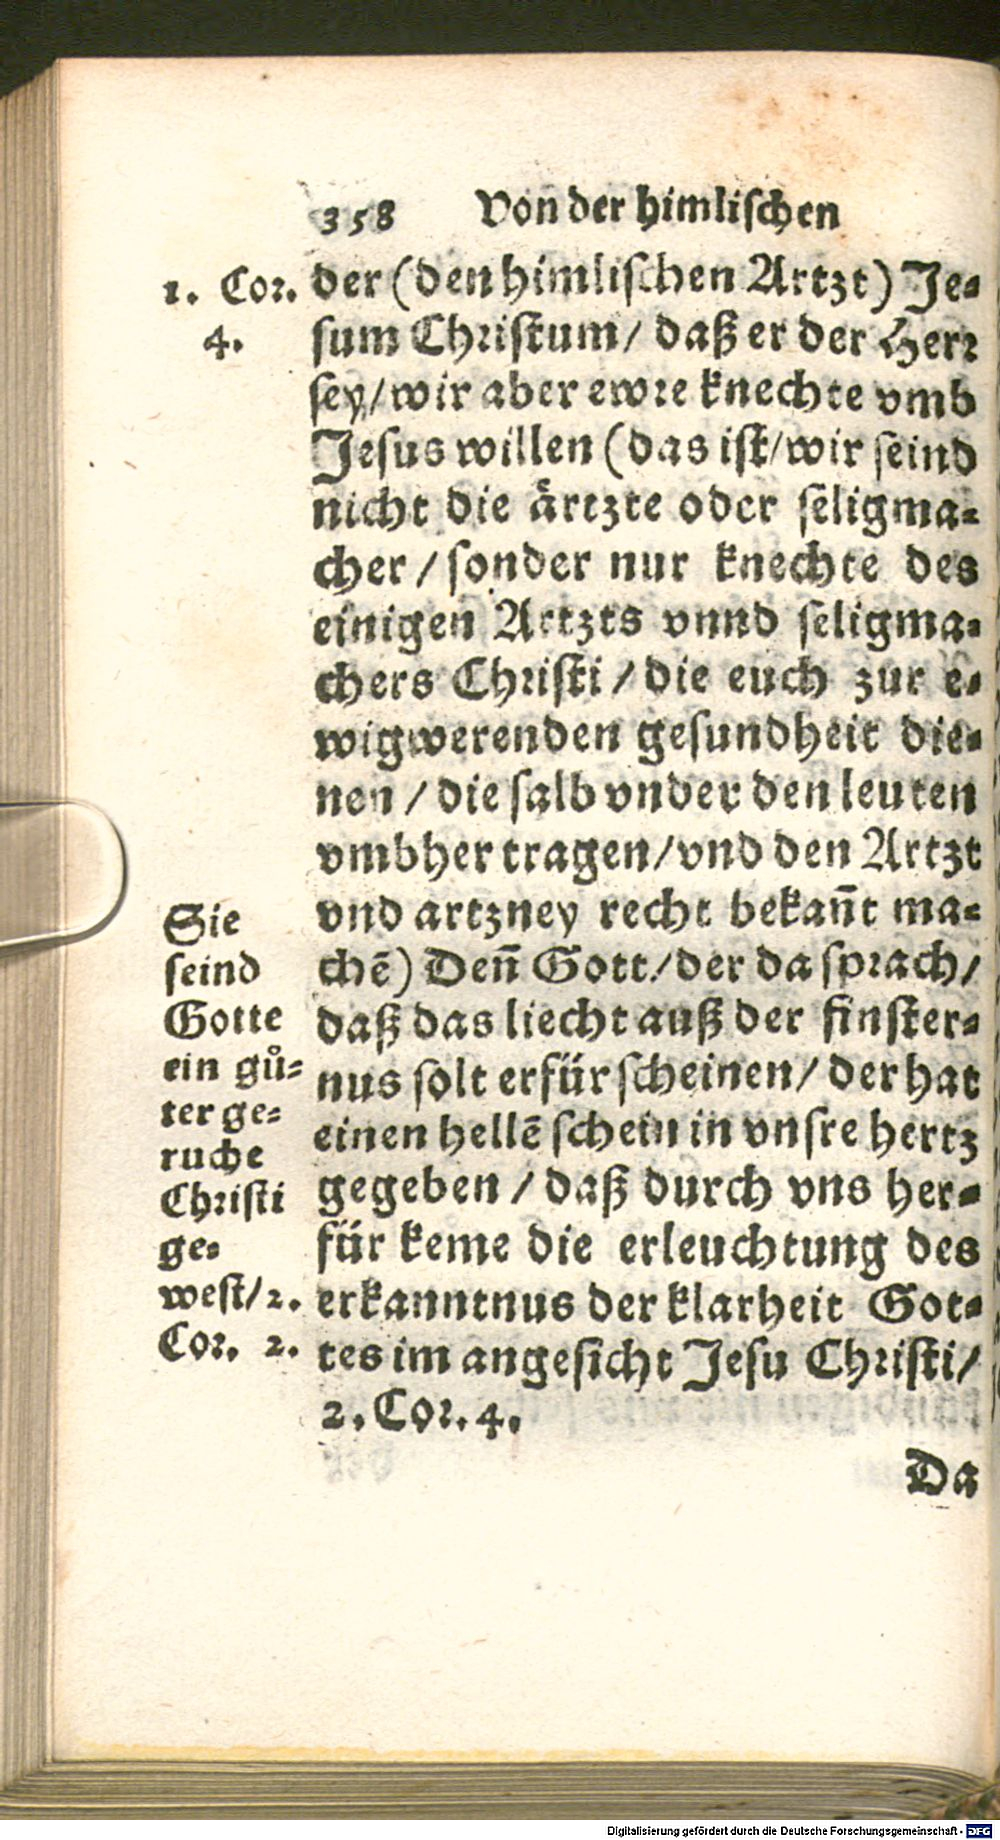 358 Von der himlischen
1. Cor.
4.
der (den himlischen Artzt) Je-
sum Christum/ daß er der Herr
sey/ wir aber ewre knechte vmb
Jesus willen (das ist/ wir seind
nicht die ärtzte oder seligma-
cher / sonder nur knechte des
einigen Artzts vnnd seligma-
chers Christi / die euch zur e-
wigwerenden gesundheit die-
nen / die salb vnder den leuten
vmbher tragen/ vnd den Artzt
vnd artzney recht bekañt ma-
chẽ) Deñ Gott/ der da sprach/
daß das liecht auß der finster-
nus solt erfür scheinen/ der hat
einen hellẽ schein in vnsre hertz
gegeben / daß durch vns her-
für keme die erleuchtung des
erkanntnus der klarheit Got-
tes im angesicht Jesu Christi/
2. Cor. 4.
Sie
seind
Gotte
ein gů-
ter ge-
ruche
Christi
ge-
west/ 2.
Cor. 2.
Da
Digitalisierung gefördert durch die Deutsche Forschungsgemeinschaft - DFG